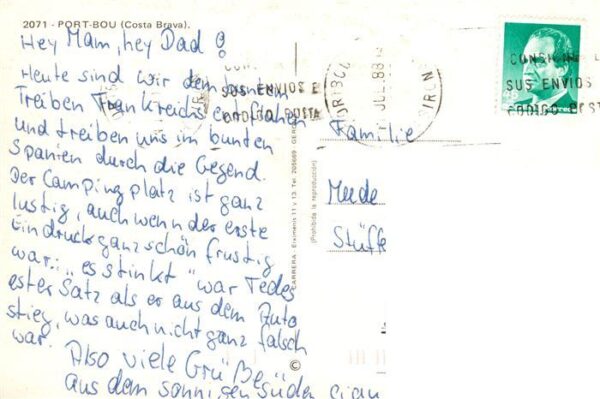 2071 - PORT-BOU (Costa Brava).
Hey Mam, hey Dad!
Heute sind wir dem bunten
Treiben Frankreichs entflohen
und treiben uns im bunten
Spanien durch die Gegend.
Der Campingplatz ist ganz
lustig, auch wenn der erste
Eindruck ganz schön frustig
war: "es stinkt" war Teds
erster Satz als er aus dem Auto
stieg, was auch nicht ganz falsch
war.
Also viele Grüße
aus dem sonnigen Süden
SUS ENVIOS E
CODIGO POSTA
JUL. 88
CONSIGNE
SUS ENVIOS
CODIGO POST
Familie
Stüffe
CARRERA. Eiximenis 11 y 13. Tel. 205669 GERO
(Prohibida la reproducción)
©